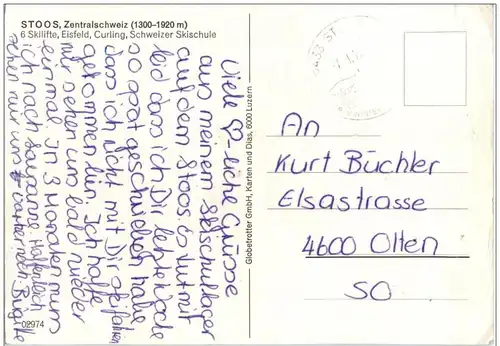 STOOS, Zentralschweiz (1300–1920 m)
6 Skilifte, Eisfeld, Curling, Schweizer Skischule
Viele ♡-liche Grüsse
aus meinem Skischullager
auf dem Stoos. Es tut mir
leid dass ich Dir letzte Woche
so spät geschrieben habe
dass ich nicht mit Dir skifahren
gekommen bin. Ich hoffe
wir sehen uns bald wieder
einmal. In 3 Monaten muss
ich nach Lausanne. Hoffentlich
sehen wir uns vorher noch. Brigitte
02974
Globetrotter GmbH, Karten und Dias, 6000 Luzern.
6433 ST
An
Kurt Büchler
Elsastrasse
4600 Olten
SO